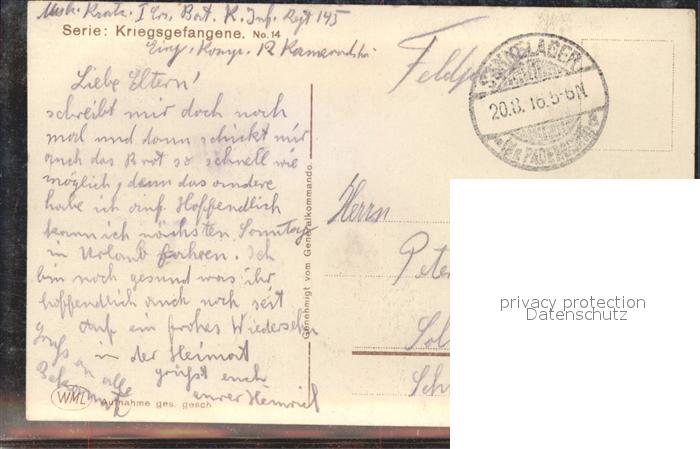 Musk. Kratz. I Ers. Bat. R. Inf. Regt 145
Serie: Kriegsgefangene. No. 14
Komp.
Feldp
SENNELAGER
20.8.16.5-6N
Liebe Eltern!
schreibt mir doch noch
mal und dann schickt mir
auch das Brot so schnell wie
möglich, denn das andere
habe ich auf. Hoffendlich
kann ich nächsten Sonntag
in Urlaub fahren. Ich
bin noch gesund was ihr
hoffendlich auch noch seit
Auf ein frohes Wiedersehn
in der Heimat
grüßt euch
eurer Heinrich
Gruß an alle
Bekannte
Genehmigt vom Generalkommando.
Herrn
Pete
Sol
Sch
WML Aufnahme ges. gesch.
privacy protection
Datenschutz